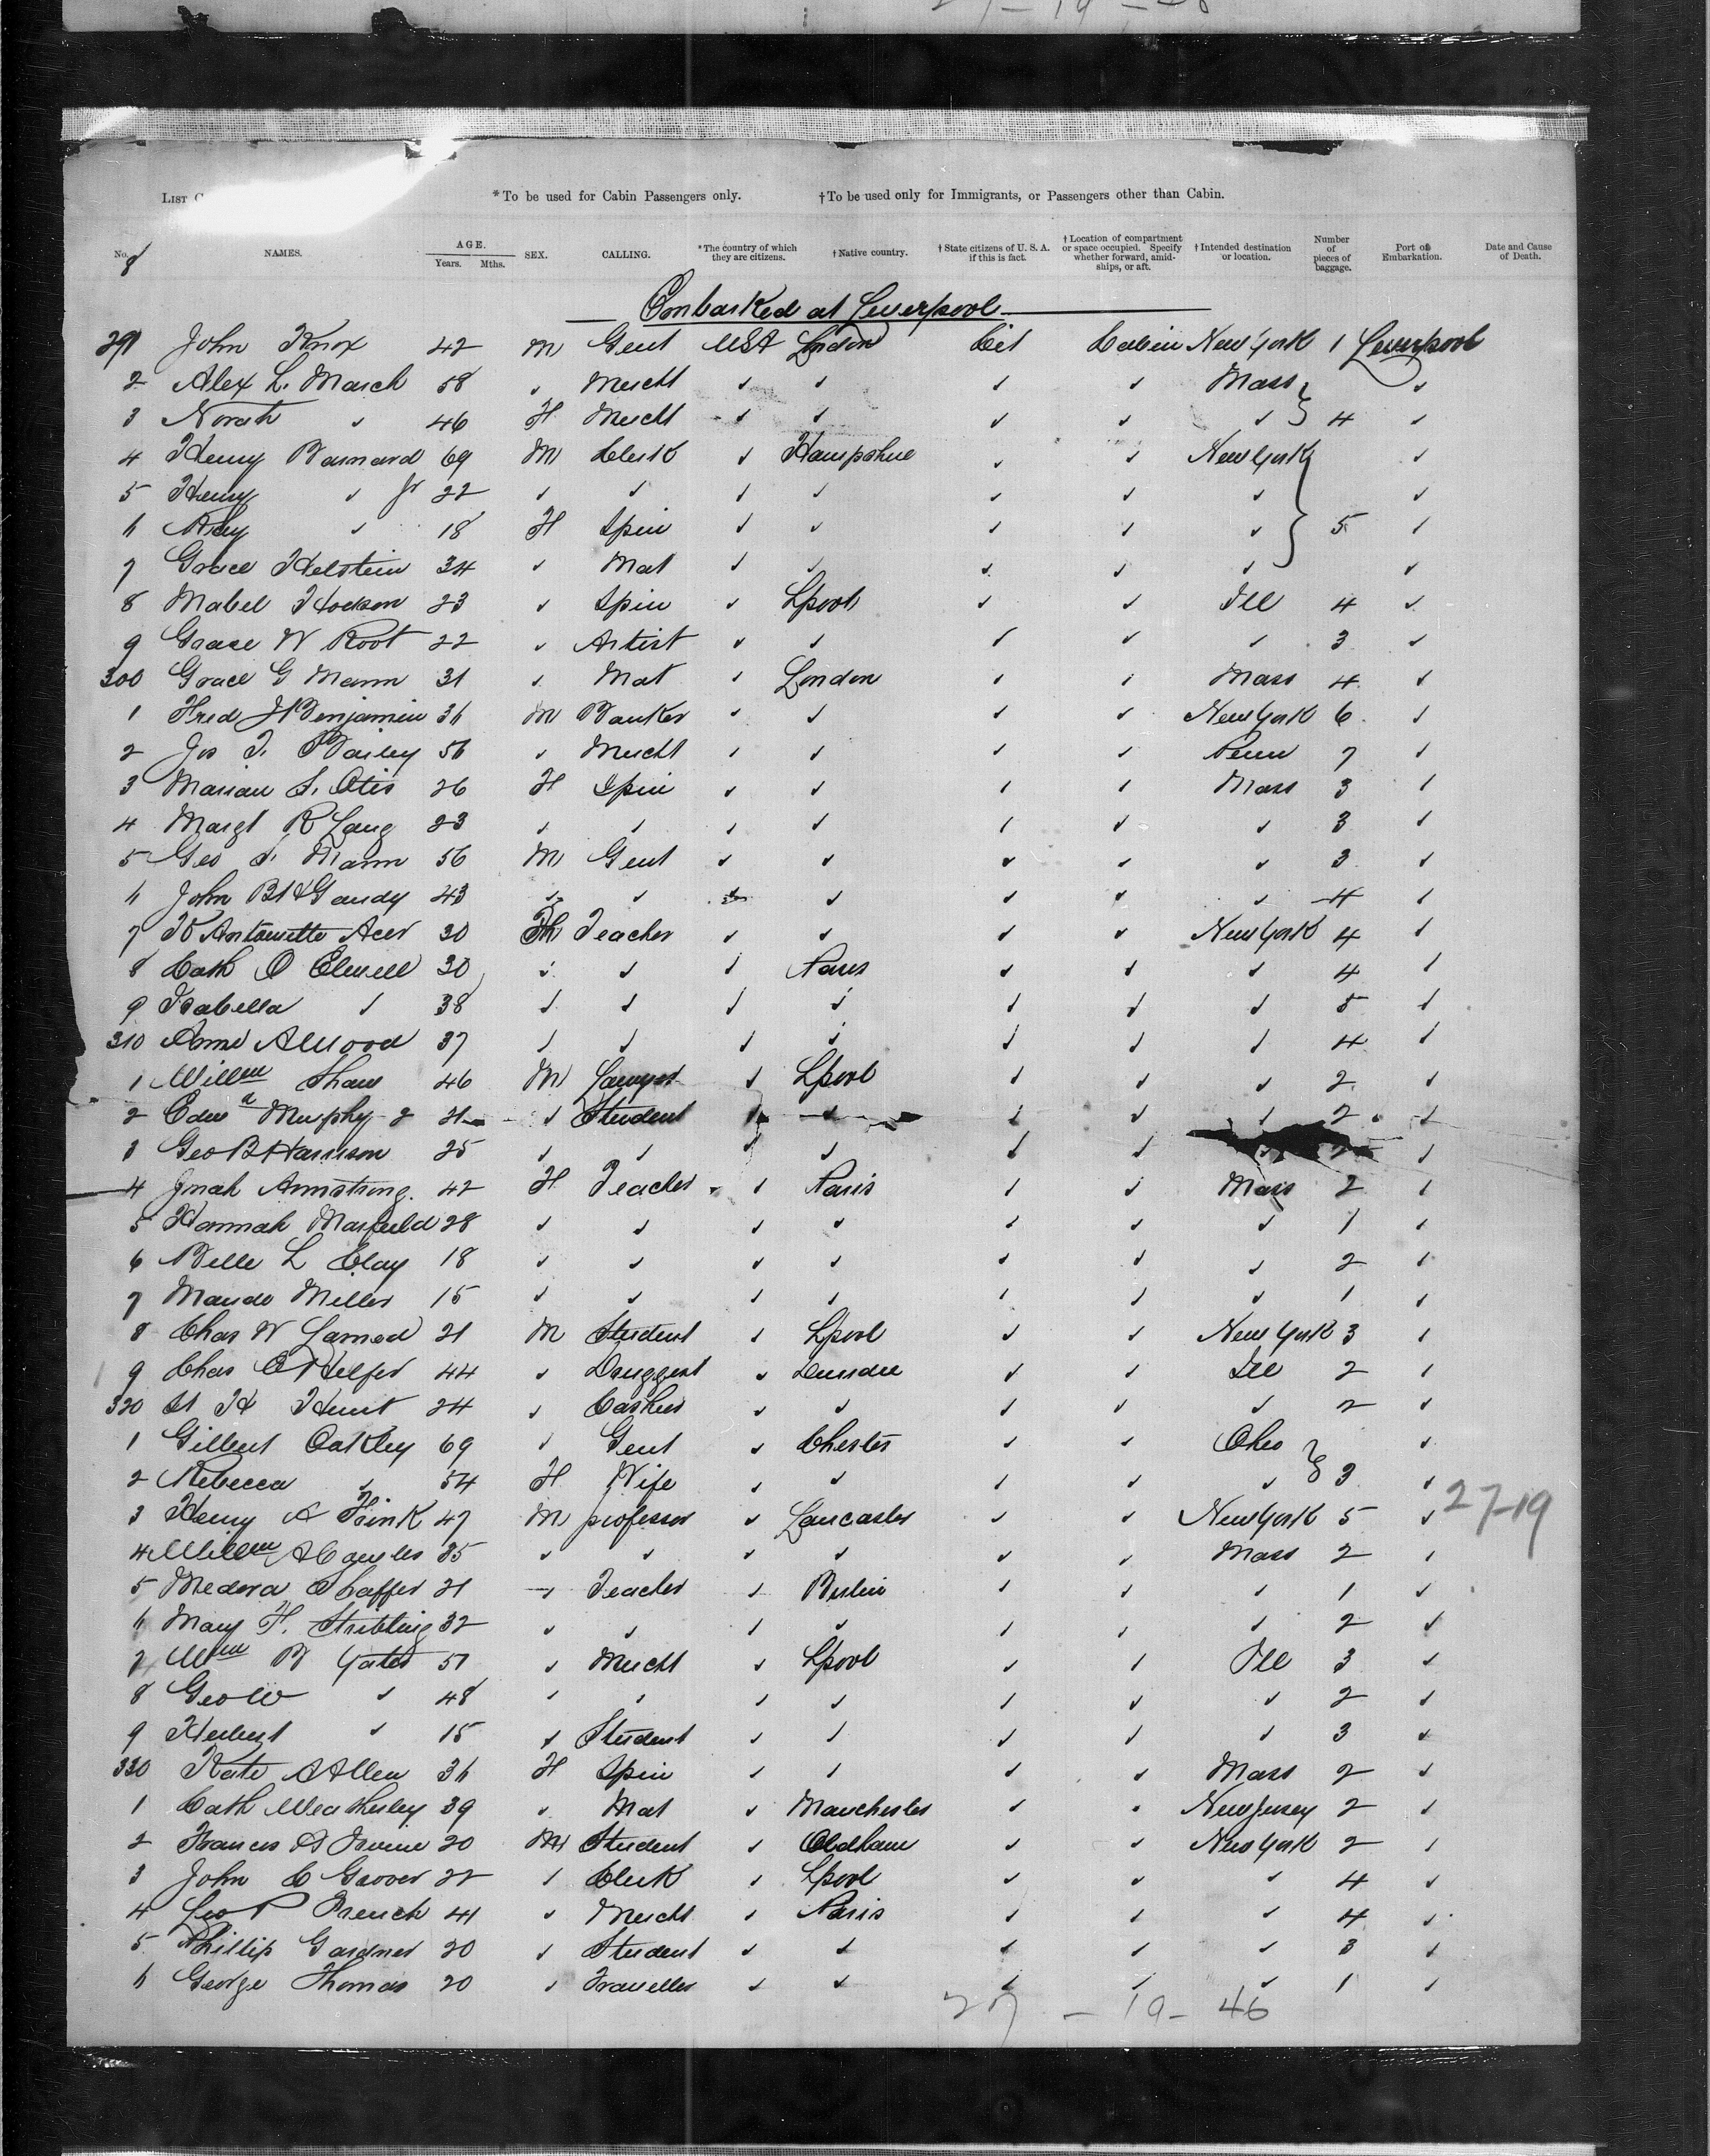 LIST
*To be used for Cabin Passengers only. †To be used only for Immigrants, or Passengers other than Cabin.
No. NAMES. AGE. Years. Mths. SEX. CALLING. *The country of which they are citizens. †Native country. †State citizens of U. S. A. if this is fact. †Location of compartment or space occupied. Specify whether forward, amidships, or aft. †Intended destination or location. Number of pieces of baggage. Port of Embarkation. Date and Cause of Death.
8
Embarked at Liverpool
291 John Knox 42 M Gent USA London Cit Cabin New York 1 Liverpool
2 Alex L. March 58 ✓ Mercht ✓ ✓ ✓ ✓ Mass ✓
3 Norah ✓ 46 F Mercht ✓ ✓ ✓ ✓ ✓ 4 ✓
4 Henry Barnard 69 M Clerk ✓ Hampshire ✓ ✓ New York ✓
5 Henry ✓ Jr 22 ✓ ✓ ✓ ✓ ✓ ✓ ✓ ✓
6 ✓ 18 F Spin ✓ ✓ ✓ ✓ ✓ 5 ✓
7 Grace Helstein 34 ✓ Mat ✓ ✓ ✓ ✓ ✓ ✓
8 Mabel Hodson 23 ✓ Spin ✓ Lpool ✓ ✓ Ill 4 ✓
9 Grace W Root 22 ✓ Artist ✓ ✓ ✓ ✓ ✓ 3 ✓
300 Grace G Mann 31 ✓ Mat ✓ London ✓ ✓ Mass 4 ✓
1 Fred H Benjamin 36 M Banker ✓ ✓ ✓ ✓ New York 6 ✓
2 Jos T. Bailey 56 ✓ Mercht ✓ ✓ ✓ ✓ Penn 7 ✓
3 Marian S. Otis 26 F Spin ✓ ✓ ✓ ✓ Mass 3 ✓
4 Margt R Lang 23 ✓ ✓ ✓ ✓ ✓ ✓ ✓ 3 ✓
5 Geo S. Mann 56 M Gent ✓ ✓ ✓ ✓ ✓ 3 ✓
6 John B Gandy 43 ✓ ✓ ✓ ✓ ✓ ✓ ✓ 4 ✓
7 Antoinette Acer 30 F Teacher ✓ ✓ ✓ ✓ New York 4 ✓
8 Cath O Elwell 30 ✓ ✓ ✓ Paris ✓ ✓ ✓ 4 ✓
9 Isabella ✓ 38 ✓ ✓ ✓ ✓ ✓ ✓ ✓ 5 ✓
310 Anne Allwood 37 ✓ ✓ ✓ ✓ ✓ ✓ ✓ 4 ✓
1 Willm Shaw 46 M Lawyer ✓ Lpool ✓ ✓ ✓ 2 ✓
2 Edwd Murphy 2 21 ✓ Student ✓ ✓ ✓ ✓ ✓ 2 ✓
3 Geo B Harrison 25 ✓ ✓ ✓ ✓ ✓ ✓ ✓ 2 ✓
4 Armstrong 42 F Teacher ✓ Paris ✓ ✓ Mass 2 ✓
5 Hannah Marfield 28 ✓ ✓ ✓ ✓ ✓ ✓ ✓ 1 ✓
6 Belle L Clay 18 ✓ ✓ ✓ ✓ ✓ ✓ ✓ 2 ✓
7 Maude Miller 15 ✓ ✓ ✓ ✓ ✓ ✓ ✓ 1 ✓
8 Chas W Larned 21 M Student ✓ Lpool ✓ ✓ New York 3 ✓
9 Chas O Helfer 44 ✓ Druggist ✓ Dundee ✓ ✓ Ill 2 ✓
320 H Hunt 24 ✓ Cashier ✓ ✓ ✓ ✓ ✓ 2 ✓
1 Gilbert Oakley 69 ✓ Gent ✓ Chester ✓ ✓ Ohio ✓
2 Rebecca ✓ 54 F Wife ✓ ✓ ✓ ✓ ✓ 3 ✓
3 Henry A Frink 47 M professor ✓ Lancaster ✓ ✓ New York 5 ✓ 27-19
4 Willm A Cowles 35 ✓ ✓ ✓ ✓ ✓ ✓ Mass 2 ✓
5 Medora Shaffer 21 ✓ Teacher ✓ Berlin ✓ ✓ ✓ 1 ✓
6 Mary F. Stribling 32 ✓ ✓ ✓ ✓ ✓ ✓ ✓ 2 ✓
7 Wm B Yates 51 ✓ Mercht ✓ Lpool ✓ ✓ Ill 3 ✓
8 Geo W ✓ 48 ✓ ✓ ✓ ✓ ✓ ✓ ✓ 2 ✓
9 Herbert ✓ 15 ✓ Student ✓ ✓ ✓ ✓ ✓ 3 ✓
330 Kate A Allen 36 F Spin ✓ ✓ ✓ ✓ Mass 2 ✓
1 Cath Weatherley 39 ✓ Mat ✓ Manchester ✓ ✓ New Jersey 2 ✓
2 Francis A Irvine 20 M Student ✓ Oldham ✓ ✓ New York 2 ✓
3 John C Grover 22 ✓ Clerk ✓ Lpool ✓ ✓ ✓ 4 ✓
4 Geo P French 41 ✓ Mercht ✓ Paris ✓ ✓ ✓ 4 ✓
5 Phillip Gardner 20 ✓ Student ✓ ✓ ✓ ✓ ✓ 3 ✓
6 George Thomas 20 ✓ Traveller ✓ ✓ ✓ ✓ ✓ 1 ✓
27 - 19 - 46